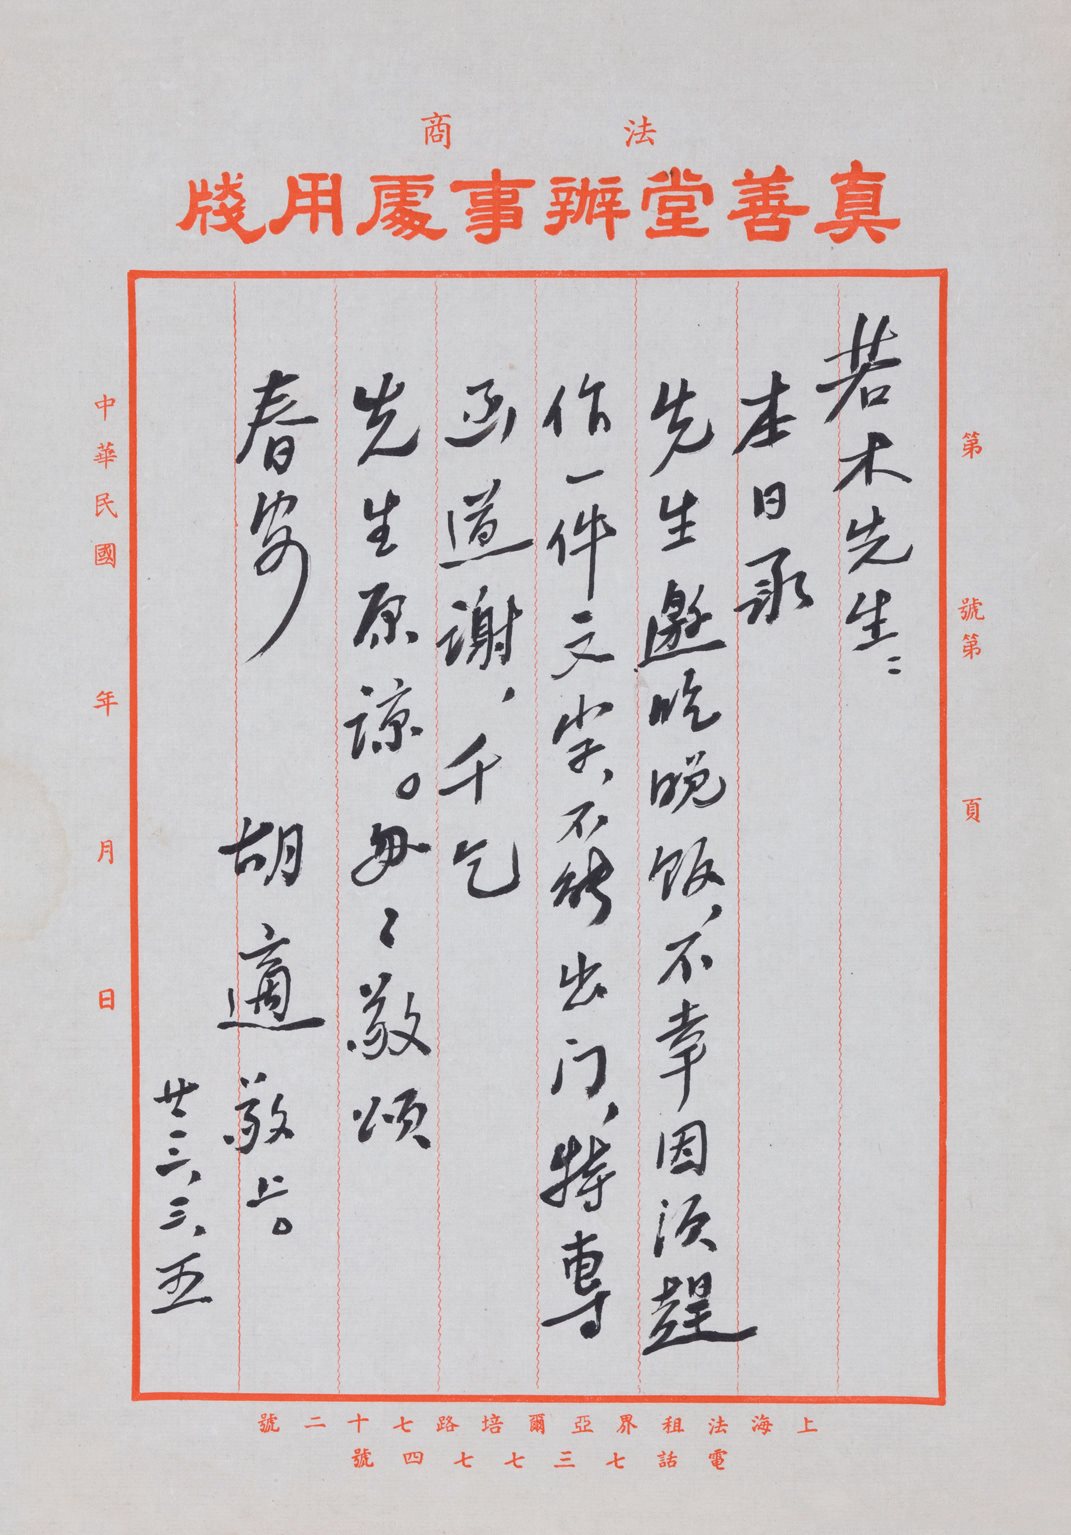 法商
真善堂辦事處用牋
若木先生：
本日承
先生邀吃晚飯，不幸因須趕
作一件文字，不能出门，特專
函道謝，千乞
先生原諒。匆々敬頌
春安
胡適敬上。
廿三、三、五
第 號第 頁
中華民國 年 月 日
上海法租界亞爾培路七十二號
電話七三七七四號